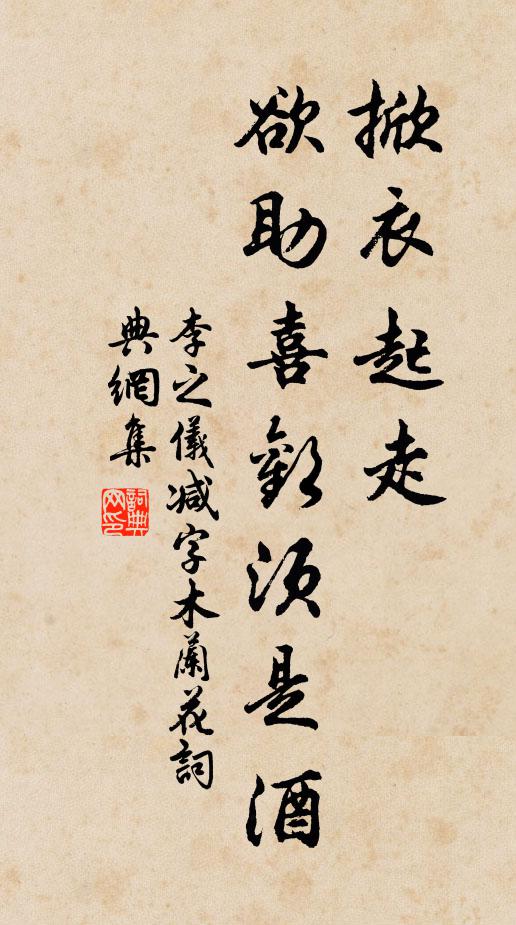 掀衣起走
欲助喜歡須是酒
李之儀減字木蘭花詞
典網集
詞典網印